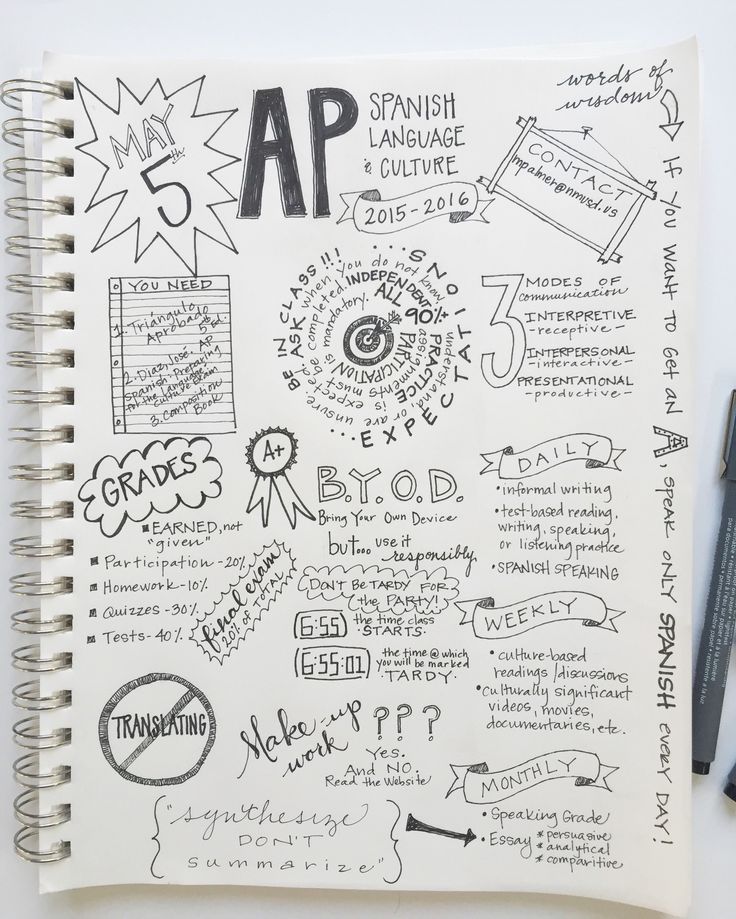 MAY
5th
AP
SPANISH
LANGUAGE
& CULTURE
2015-2016
words of
wisdom
If you want to get an A, speak only SPANISH every day!
CONTACT
mpalmer@nmusd.us
YOU NEED
1. Triángulo
Aprobado
5 Ed.
2. Díaz, José. AP
Spanish: Preparing
for the Language &
Culture Exam
3. Composition
Book
...EXPECTATIONS...
BE IN CLASS!!!
ASK when you do not know, understand, or are unsure.
INDEPENDENT PRACTICE is expected.
ALL assignments must be completed.
90%+ PARTICIPATION is mandatory.
3 MODES OF
communication
INTERPRETIVE
-receptive-
INTERPERSONAL
-interactive-
PRESENTATIONAL
-productive-
GRADES
A+
EARNED, not
"given"
Participation-20%
Homework-10%
Quizzes-30%
Tests-40%
final exam
20% OF TOTAL
B.Y.O.D.
Bring Your Own Device
but... use it
responsibly.
DON'T BE TARDY FOR
the PARTY!
6:55 the time class
STARTS.
6:55:01 the time @ which
you will be marked
TARDY.
DAILY
• informal writing
• text-based reading,
writing, speaking,
or listening practice
• SPANISH SPEAKING
WEEKLY
• culture-based
readings/discussions
• culturally significant
videos, movies,
documentaries, etc.
TRANSLATING
Make-up
work
???
Yes.
And NO.
Read the Website
MONTHLY
• Speaking Grade
• Essay * persuasive
* analytical
* comparitive
"synthesize
DON'T
summarize"
para documentos • permanente sobre papel • resistente a la luz